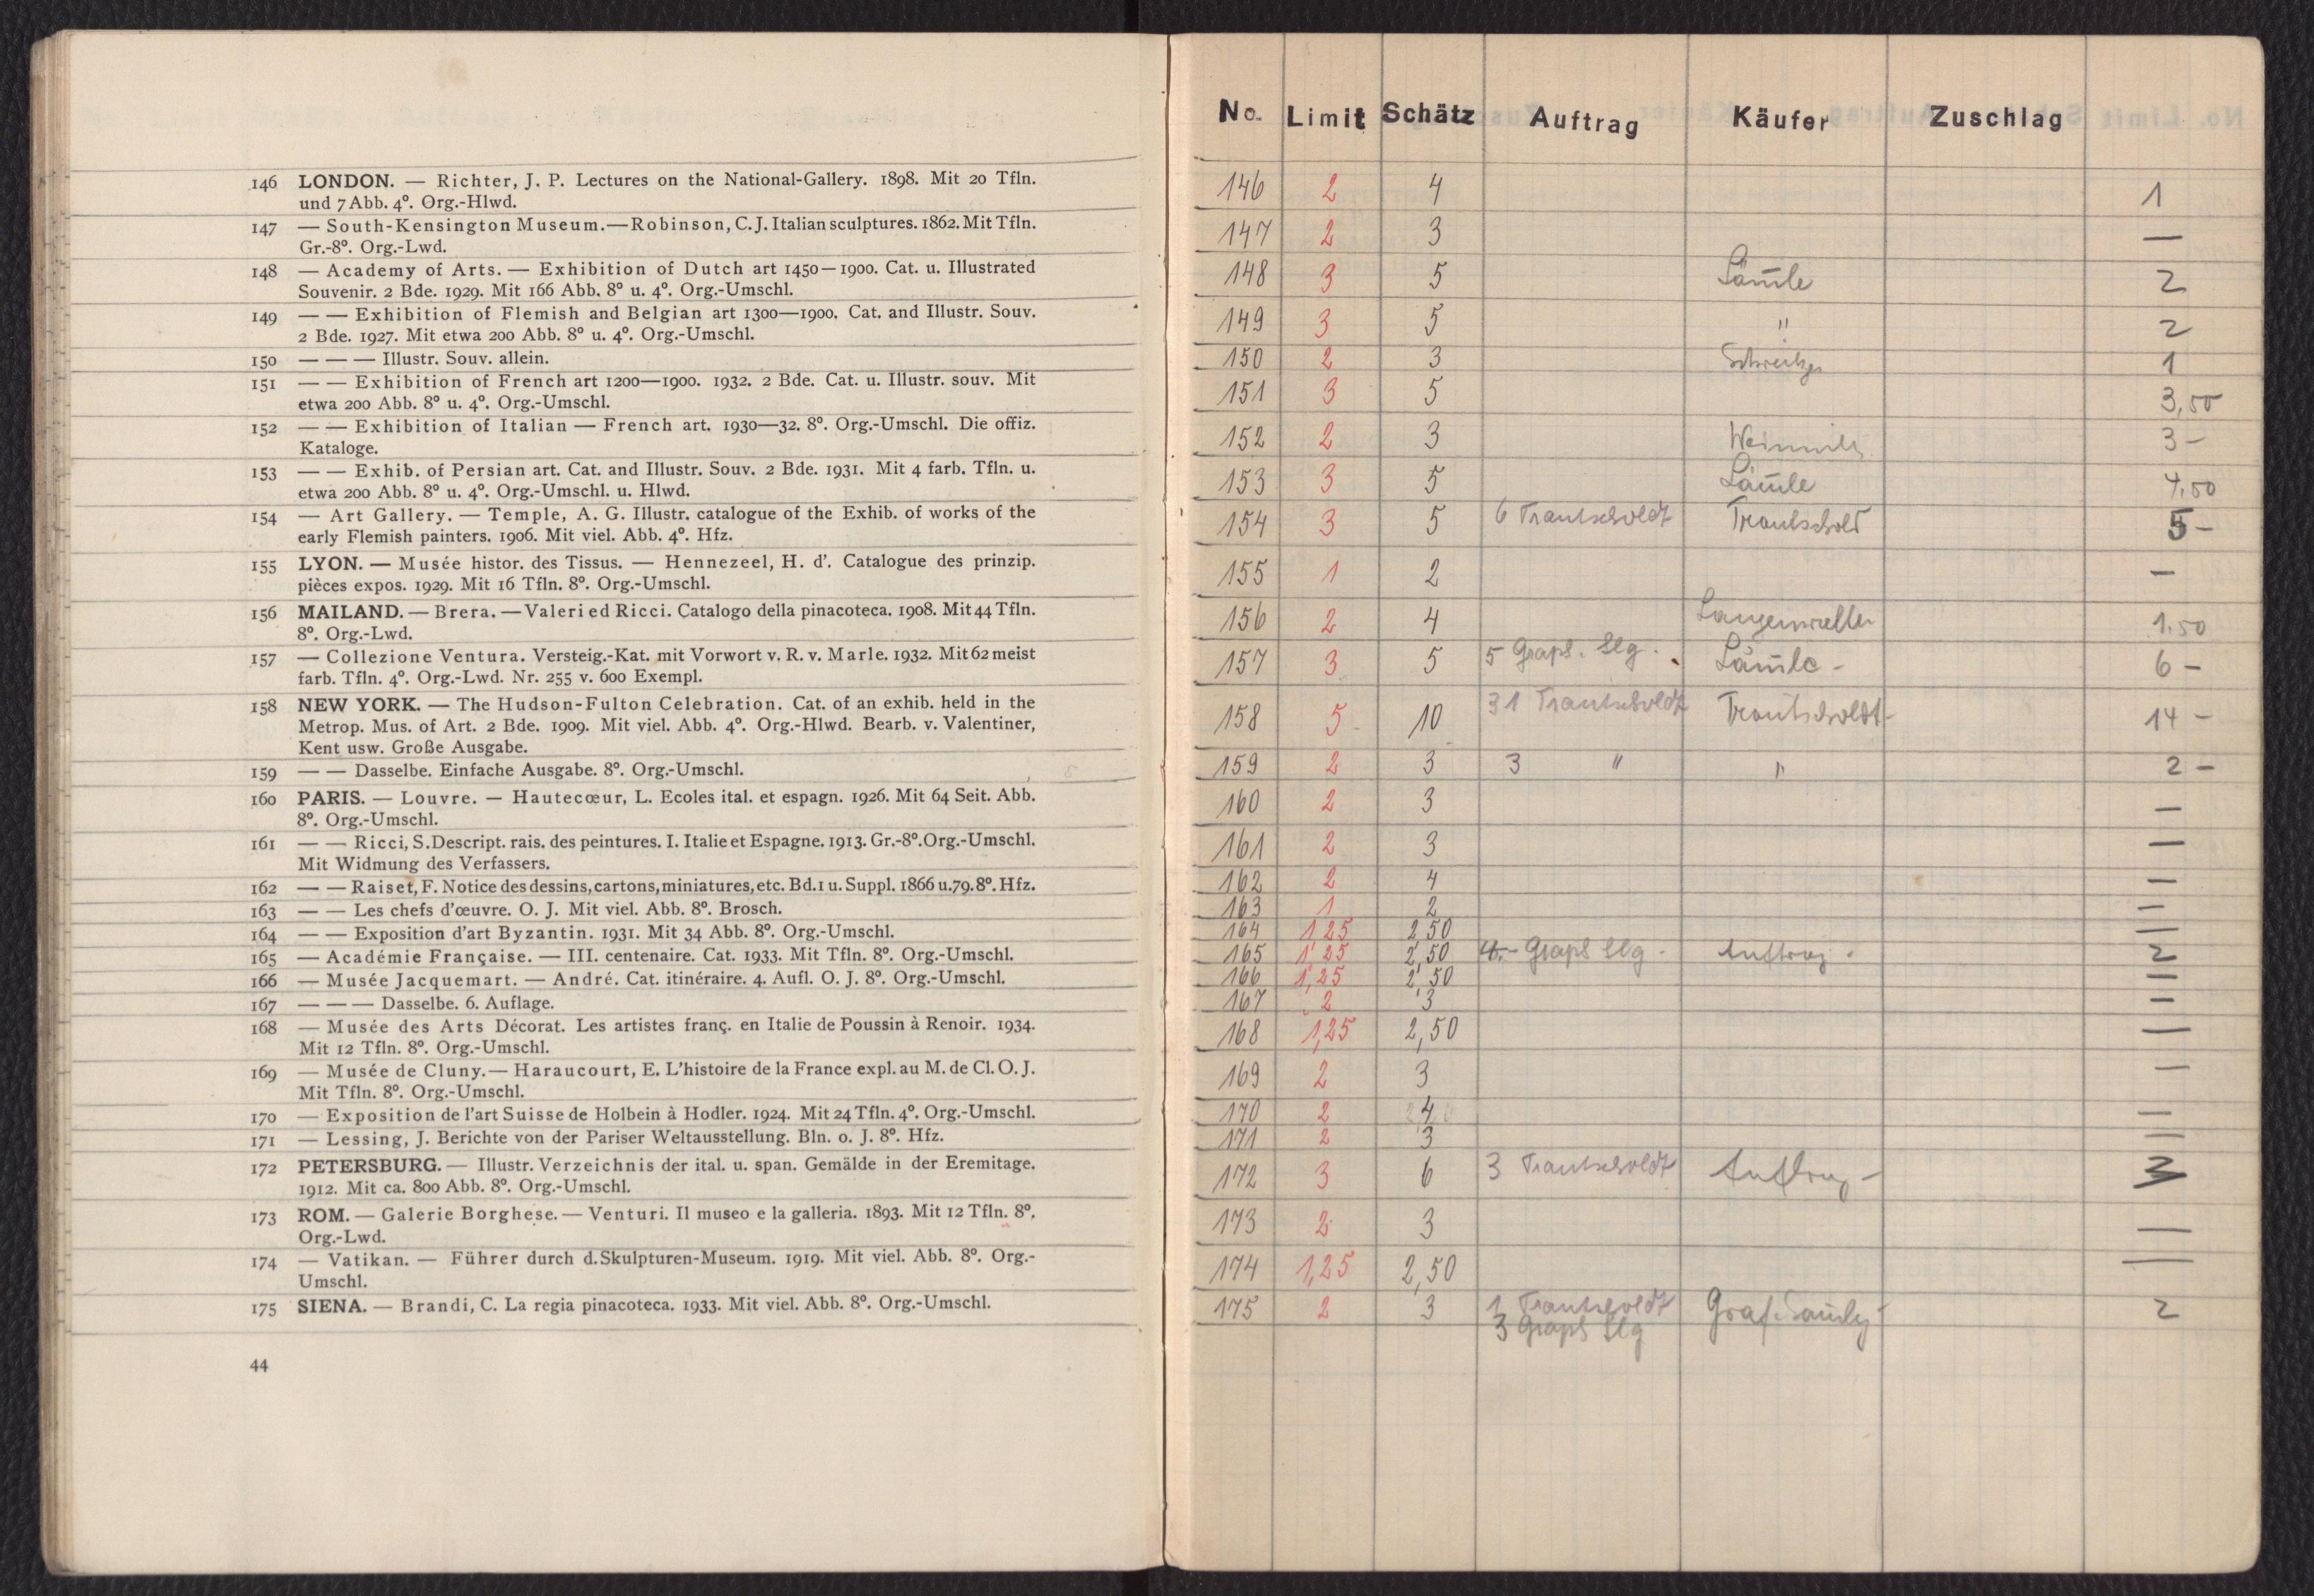 146 LONDON. — Richter, J. P. Lectures on the National-Gallery. 1898. Mit 20 Tfln.
und 7 Abb. 4°. Org.-Hlwd.
147 — South-Kensington Museum.—Robinson, C. J. Italian sculptures. 1862. Mit Tfln.
Gr.-8°. Org.-Lwd.
148 — Academy of Arts. — Exhibition of Dutch art 1450—1900. Cat. u. Illustrated
Souvenir. 2 Bde. 1929. Mit 166 Abb. 8° u. 4°. Org.-Umschl.
149 — — Exhibition of Flemish and Belgian art 1300—1900. Cat. and Illustr. Souv.
2 Bde. 1927. Mit etwa 200 Abb. 8° u. 4°. Org.-Umschl.
150 — — — Illustr. Souv. allein.
151 — — Exhibition of French art 1200—1900. 1932. 2 Bde. Cat. u. Illustr. souv. Mit
etwa 200 Abb. 8° u. 4°. Org.-Umschl.
152 — — Exhibition of Italian — French art. 1930—32. 8°. Org.-Umschl. Die offiz.
Kataloge.
153 — — Exhib. of Persian art. Cat. and Illustr. Souv. 2 Bde. 1931. Mit 4 farb. Tfln. u.
etwa 200 Abb. 8° u. 4°. Org.-Umschl. u. Hlwd.
154 — Art Gallery. — Temple, A. G. Illustr. catalogue of the Exhib. of works of the
early Flemish painters. 1906. Mit viel. Abb. 4°. Hfz.
155 LYON. — Musée histor. des Tissus. — Hennezeel, H. d'. Catalogue des prinzip.
pièces expos. 1929. Mit 16 Tfln. 8°. Org.-Umschl.
156 MAILAND. — Brera. — Valeri ed Ricci. Catalogo della pinacoteca. 1908. Mit 44 Tfln.
8°. Org.-Lwd.
157 — Collezione Ventura. Versteig.-Kat. mit Vorwort v. R. v. Marle. 1932. Mit 62 meist
farb. Tfln. 4°. Org.-Lwd. Nr. 255 v. 600 Exempl.
158 NEW YORK. — The Hudson-Fulton Celebration. Cat. of an exhib. held in the
Metrop. Mus. of Art. 2 Bde. 1909. Mit viel. Abb. 4°. Org.-Hlwd. Bearb. v. Valentiner,
Kent usw. Große Ausgabe.
159 — — Dasselbe. Einfache Ausgabe. 8°. Org.-Umschl.
160 PARIS. — Louvre. — Hautecœur, L. Ecoles ital. et espagn. 1926. Mit 64 Seit. Abb.
8°. Org.-Umschl.
161 — — Ricci, S. Descript. rais. des peintures. I. Italie et Espagne. 1913. Gr.-8°. Org.-Umschl.
Mit Widmung des Verfassers.
162 — — Raiset, F. Notice des dessins, cartons, miniatures, etc. Bd. 1 u. Suppl. 1866 u. 79. 8°. Hfz.
163 — — Les chefs d'œuvre. O. J. Mit viel. Abb. 8°. Brosch.
164 — — Exposition d'art Byzantin. 1931. Mit 34 Abb. 8°. Org.-Umschl.
165 — Académie Française. — III. centenaire. Cat. 1933. Mit Tfln. 8°. Org.-Umschl.
166 — Musée Jacquemart. — André. Cat. itinéraire. 4. Aufl. O. J. 8°. Org.-Umschl.
167 — — — Dasselbe. 6. Auflage.
168 — Musée des Arts Décorat. Les artistes franç. en Italie de Poussin à Renoir. 1934.
Mit 12 Tfln. 8°. Org.-Umschl.
169 — Musée de Cluny.— Haraucourt, E. L'histoire de la France expl. au M. de Cl. O. J.
Mit Tfln. 8°. Org.-Umschl.
170 — Exposition de l'art Suisse de Holbein à Hodler. 1924. Mit 24 Tfln. 4°. Org.-Umschl.
171 — Lessing, J. Berichte von der Pariser Weltausstellung. Bln. o. J. 8°. Hfz.
172 PETERSBURG. — Illustr. Verzeichnis der ital. u. span. Gemälde in der Eremitage.
1912. Mit ca. 800 Abb. 8°. Org.-Umschl.
173 ROM. — Galerie Borghese. — Venturi. Il museo e la galleria. 1893. Mit 12 Tfln. 8°.
Org.-Lwd.
174 — Vatikan. — Führer durch d. Skulpturen-Museum. 1919. Mit viel. Abb. 8°. Org.-
Umschl.
175 SIENA. — Brandi, C. La regia pinacoteca. 1933. Mit viel. Abb. 8°. Org.-Umschl.
44
No. Limit Schätz Auftrag Käufer Zuschlag
146 2 4 1
147 2 3 —
148 3 5 Lämle 2
149 3 5 " 2
150 2 3 1
151 3 5 3,50
152 2 3 3 –
153 3 5 Lämle 4,50
154 3 5 6 Trautscholdt Trautschold 5 –
155 1 2 —
156 2 4 1.50
157 3 5 5 Graph. Slg. Lämle – 6 –
158 5 10 31 Trautscholdt Trautscholdt – 14 –
159 2 3 3 " " 2 –
160 2 3 —
161 2 3 —
162 2 4 —
163 1 2 —
164 1 25 2 50 —
165 1,25 2,50 4.– Graph Slg – Auftrag. 2
166 1,25 2,50 —
167 2 3 —
168 1,25 2,50 —
169 2 3 —
170 2 4 —
171 2 3 —
172 3 6 3 Trautscholdt Auftrag – 3
173 2 3 —
174 1,25 2,50 —
175 2 3 1 Trautscholdt 2
3 Graph Slg